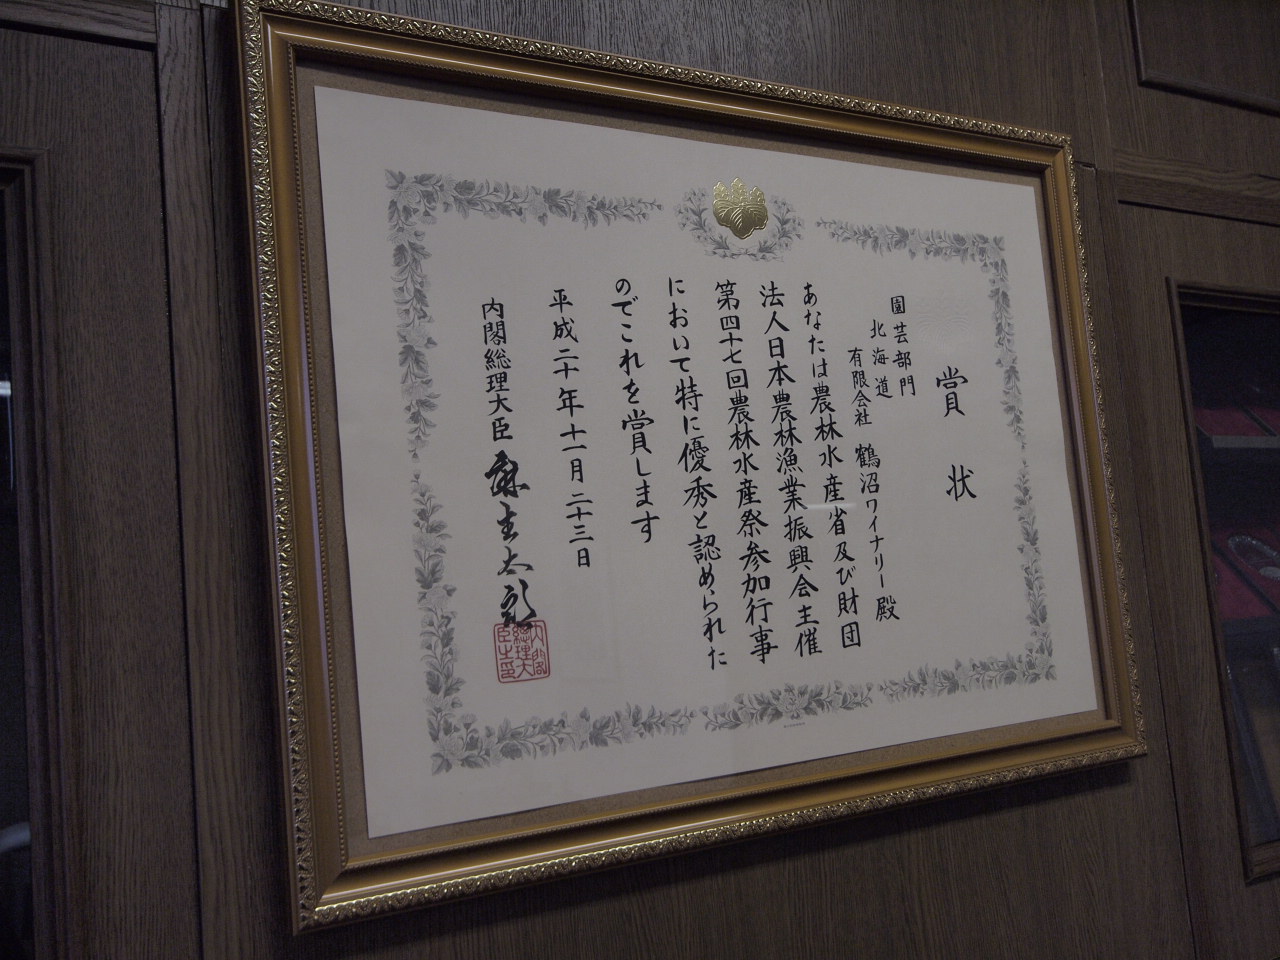 賞状
園芸部門
北海道
有限会社 鶴沼ワイナリー殿
あなたは農林水産省及び財団
法人日本農林漁業振興会主催
第四十七回農林水産祭参加行事
において特に優秀と認められた
のでこれを賞します
平成二十年十一月二十三日
内閣総理大臣 麻生太郎
内閣總理大臣之印